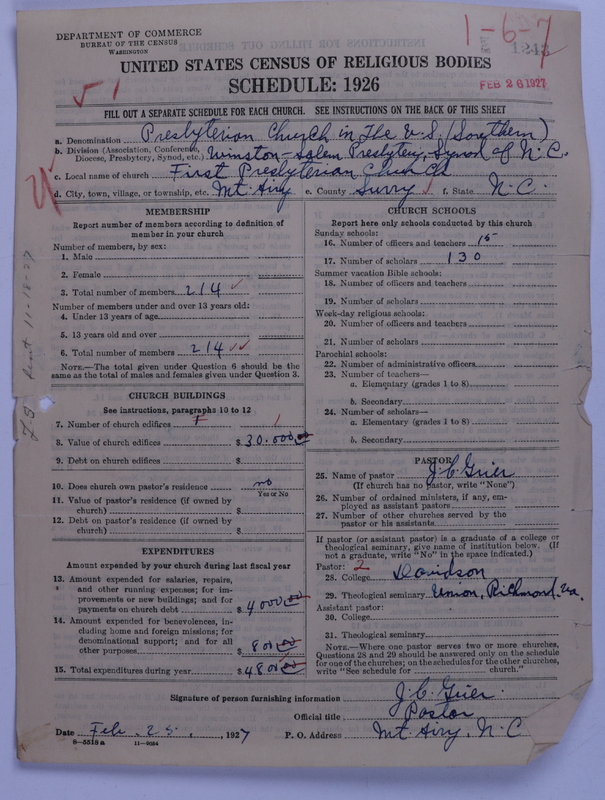 DEPARTMENT OF COMMERCE
BUREAU OF THE CENSUS
WASHINGTON
1-6-7
1243
UNITED STATES CENSUS OF RELIGIOUS BODIES
SCHEDULE: 1926
FEB 26 1927
FILL OUT A SEPARATE SCHEDULE FOR EACH CHURCH. SEE INSTRUCTIONS ON THE BACK OF THIS SHEET
a. Denomination Presbyterian Church in The U S. (Southern)
b. Division (Association, Conference, Diocese, Presbytery, Synod, etc.) Winston-Salem Presbytery, Synod of N.C.
c. Local name of church First Presbyterian Church
d. City, town, village, or township, etc. Mt. Airy e. County Surry f. State N.C.
MEMBERSHIP
Report number of members according to definition of
member in your church
Number of members, by sex:
1. Male
2. Female
3. Total number of members 214
Number of members under and over 13 years old:
4. Under 13 years of age
5. 13 years old and over
6. Total number of members 214
NOTE.—The total given under Question 6 should be
same as the total of males and females given under Question 3.
CHURCH BUILDINGS
See instructions, paragraphs 10 to 12
7. Number of church edifices 1
8. Value of church edifices $ 30.000.00
9. Debt on church edifices $
10. Does church own pastor's residence no
Yes or No
11. Value of pastor's residence (if owned by
church) $
12. Debt on pastor's residence (if owned by
church) $
EXPENDITURES
Amount expended by your church during last fiscal year
13. Amount expended for salaries, repairs,
and other running expenses; for im-
provements or new buildings; and for
payments on church debt $ 4000.00
14. Amount expended for benevolences, in-
cluding home and foreign missions; for
denominational support; and for all
other purposes $ 800.00
15. Total expenditures during year $ 4800.00
CHURCH SCHOOLS
Report here only schools conducted by this church
Sunday schools:
16. Number of officers and teachers 15
17. Number of scholars 130
Summer vacation Bible schools:
18. Number of officers and teachers
19. Number of scholars
Week-day religious schools:
20. Number of officers and teachers
21. Number of scholars
Parochial schools:
22. Number of administrative officers
23. Number of teachers—
a. Elementary (grades 1 to 8)
b. Secondary
24. Number of scholars—
a. Elementary (grades 1 to 8)
b. Secondary
PASTOR
25. Name of pastor J. C. Grier
(If church has no pastor, write "None")
26. Number of ordained ministers, if any, em-
ployed as assistant pastors
27. Number of other churches served by the
pastor or his assistants
If pastor (or assistant pastor) is a graduate of a college or
theological seminary, give name of institution below. (If
not a graduate, write "No" in the space indicated.)
Pastor: 2
28. College Davidson
29. Theological seminary Union, Richmond, Va.
Assistant pastor:
30. College
31. Theological seminary
NOTE.—Where one pastor serves two or more churches,
Questions 28 and 29 should be answered only on the schedule
for one of the churches; on the schedules for the other churches,
write "See schedule for church."
Signature of person furnishing information J. C. Grier
Official title Pastor
Date Feb. 25, 1927 P. O. Address Mt. Airy, N.C.
8-5518 a 11-9084